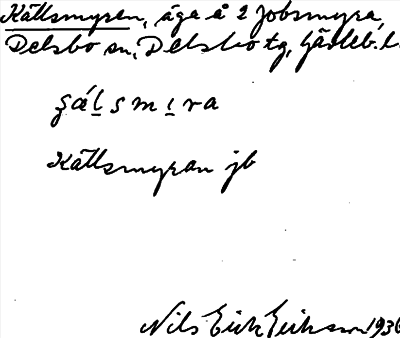 Källsmyren, äga å 2 Jobsmyra,
Delsbo sn, Delsbo tg, Gävleb. l.
s̨ál̲smi̲ra
Källsmyran jb
Nils Erik Eriksson 1936